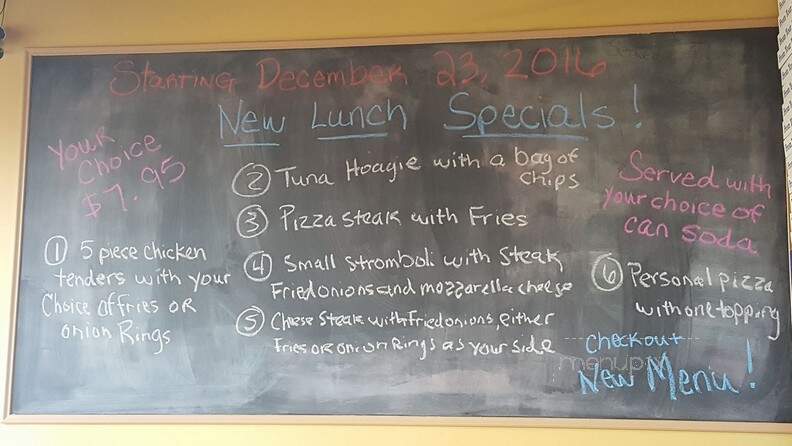 Starting December 23, 2016
New Lunch Specials!
Your
Choice
$7.95
① 5 piece chicken
tenders with your
Choice of fries or
onion Rings
② Tuna Hoagie with a bag of
chips
③ Pizza steak with Fries
④ Small Stromboli with Steak
Fried onions and mozzarella cheese
⑤ Cheese Steak with Fried onions, either
Fries or onion Rings as your side
Served with
your choice of
can soda
⑥ Personal pizza
with one topping
Checkout
New Menu!